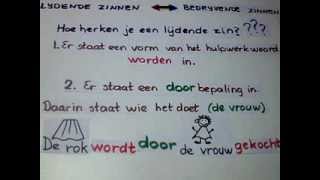 LIJDENDE ZINNEN ↔ BEDRIJVENDE ZINNEN
Hoe herken je een lijdende zin????
1. Er staat een vorm van het hulpwerkwoord
worden in.
2. Er staat een door bepaling in.
Daarin staat wie het doet (de vrouw)
De rok wordt door de vrouw gekocht